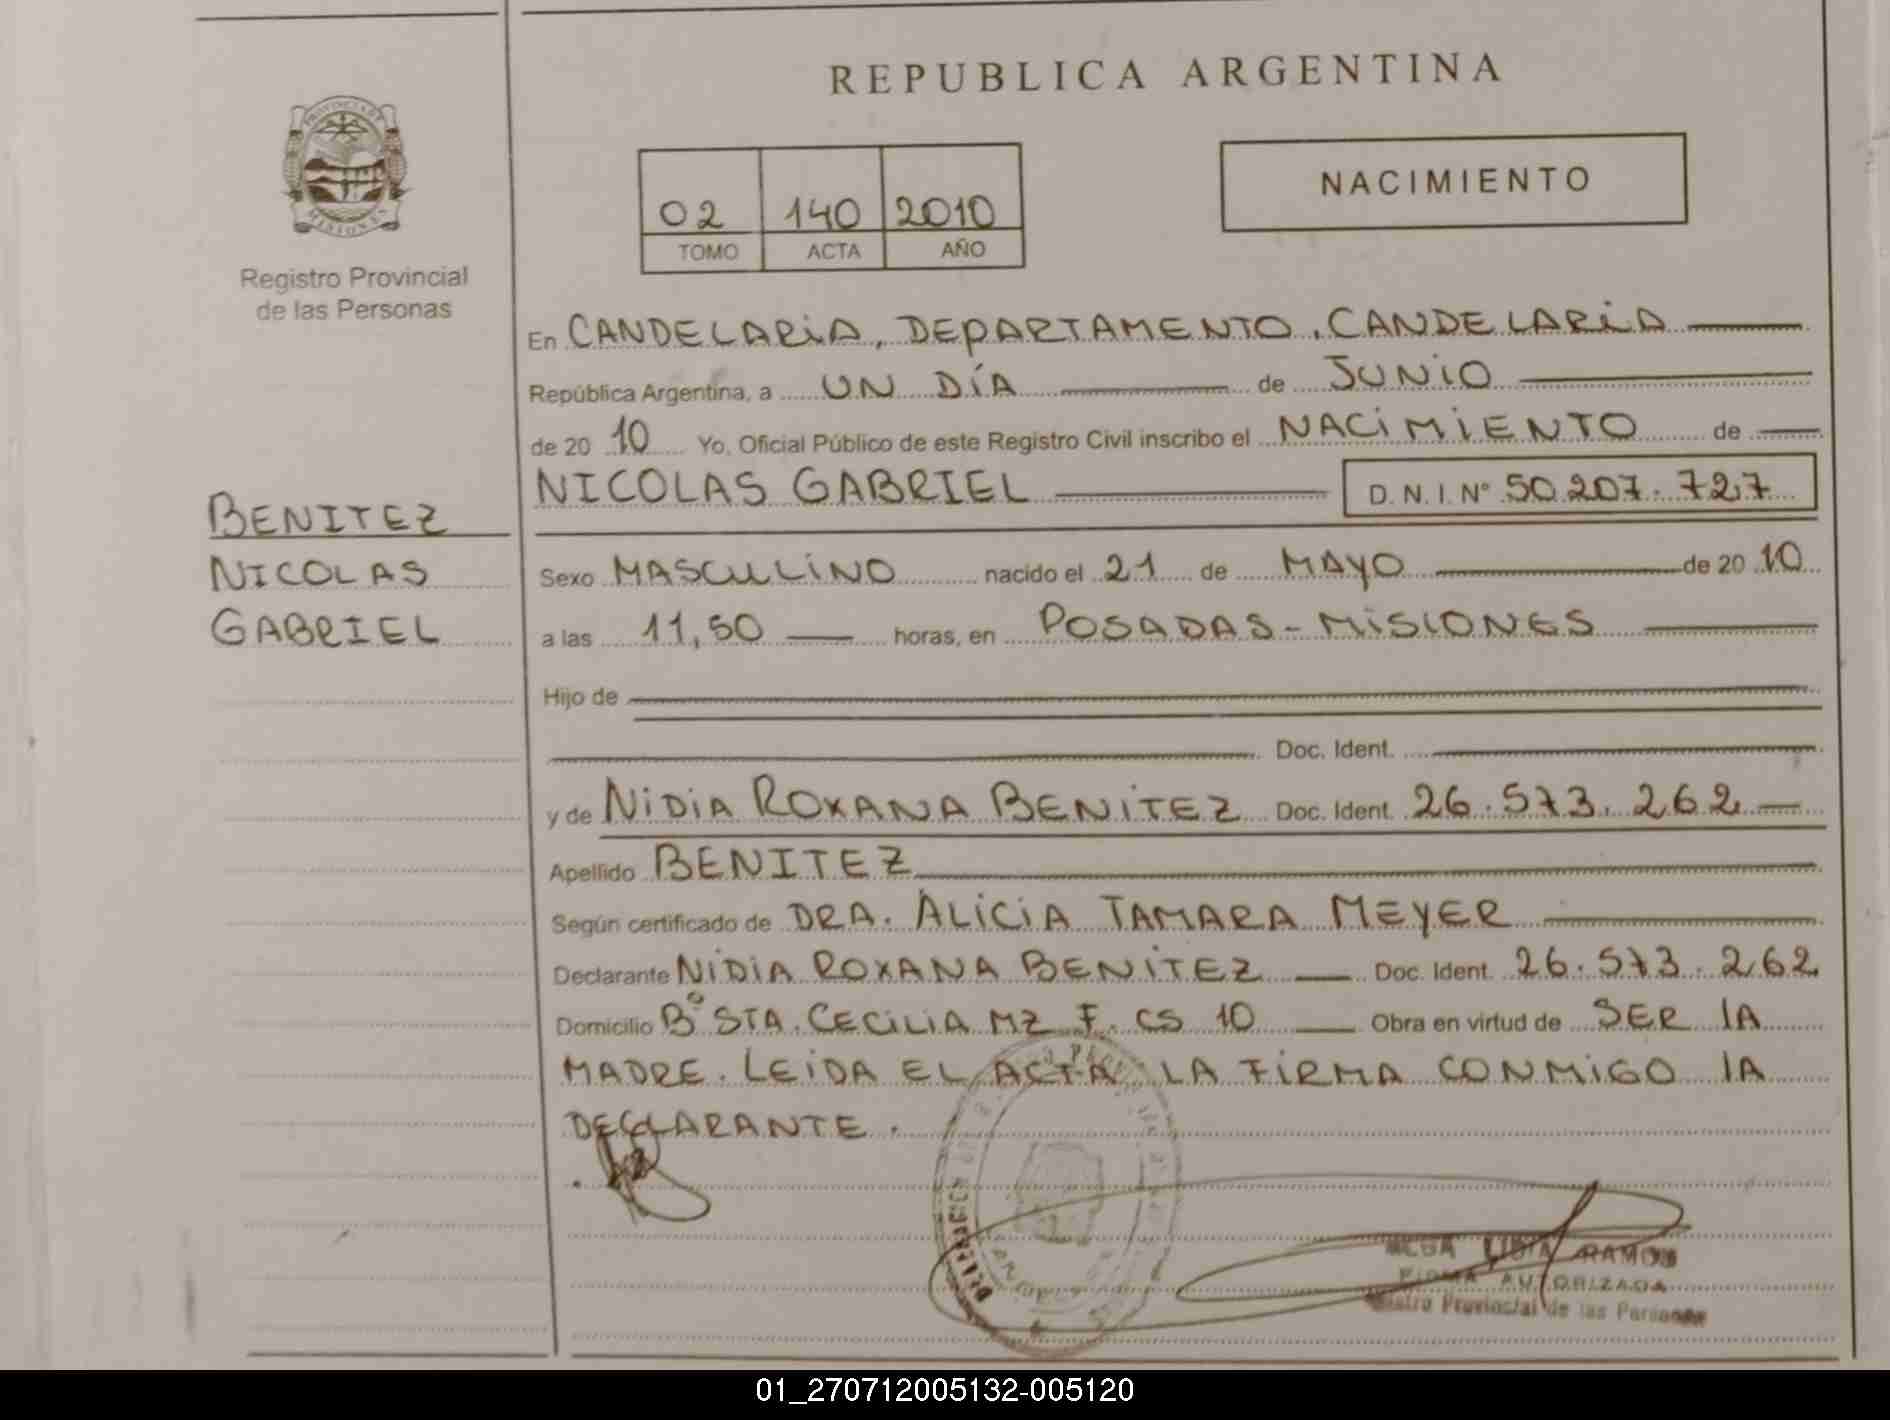 REPUBLICA ARGENTINA
PROVINCIA DE
MISIONES
Registro Provincial
de las Personas
02 140 2010
TOMO ACTA AÑO
NACIMIENTO
En CANDELARIA, DEPARTAMENTO, CANDELARIA
República Argentina, a UN DÍA de JUNIO
de 20 10 Yo, Oficial Público de este Registro Civil inscribo el NACIMIENTO de
NICOLAS GABRIEL D.N.I. Nº 50.207.727
BENITEZ
NICOLAS
GABRIEL
Sexo MASCULINO nacido el 21 de MAYO de 20 10
a las 11,50 horas, en POSADAS - MISIONES
Hijo de
Doc. Ident.
y de NIDIA ROXANA BENITEZ Doc. Ident. 26.573.262
Apellido BENITEZ
Según certificado de DRA. ALICIA TAMARA MEYER
Declarante NIDIA ROXANA BENITEZ Doc. Ident. 26.573.262
Domicilio Bº STA. CECILIA MZ F. CS 10 Obra en virtud de SER LA
MADRE. LEIDA EL ACTA LA FIRMA CONMIGO LA
DECLARANTE.
RAMOS
FIRMA AUTORIZADA
Provincial de las Personas
01_270712005132-005120